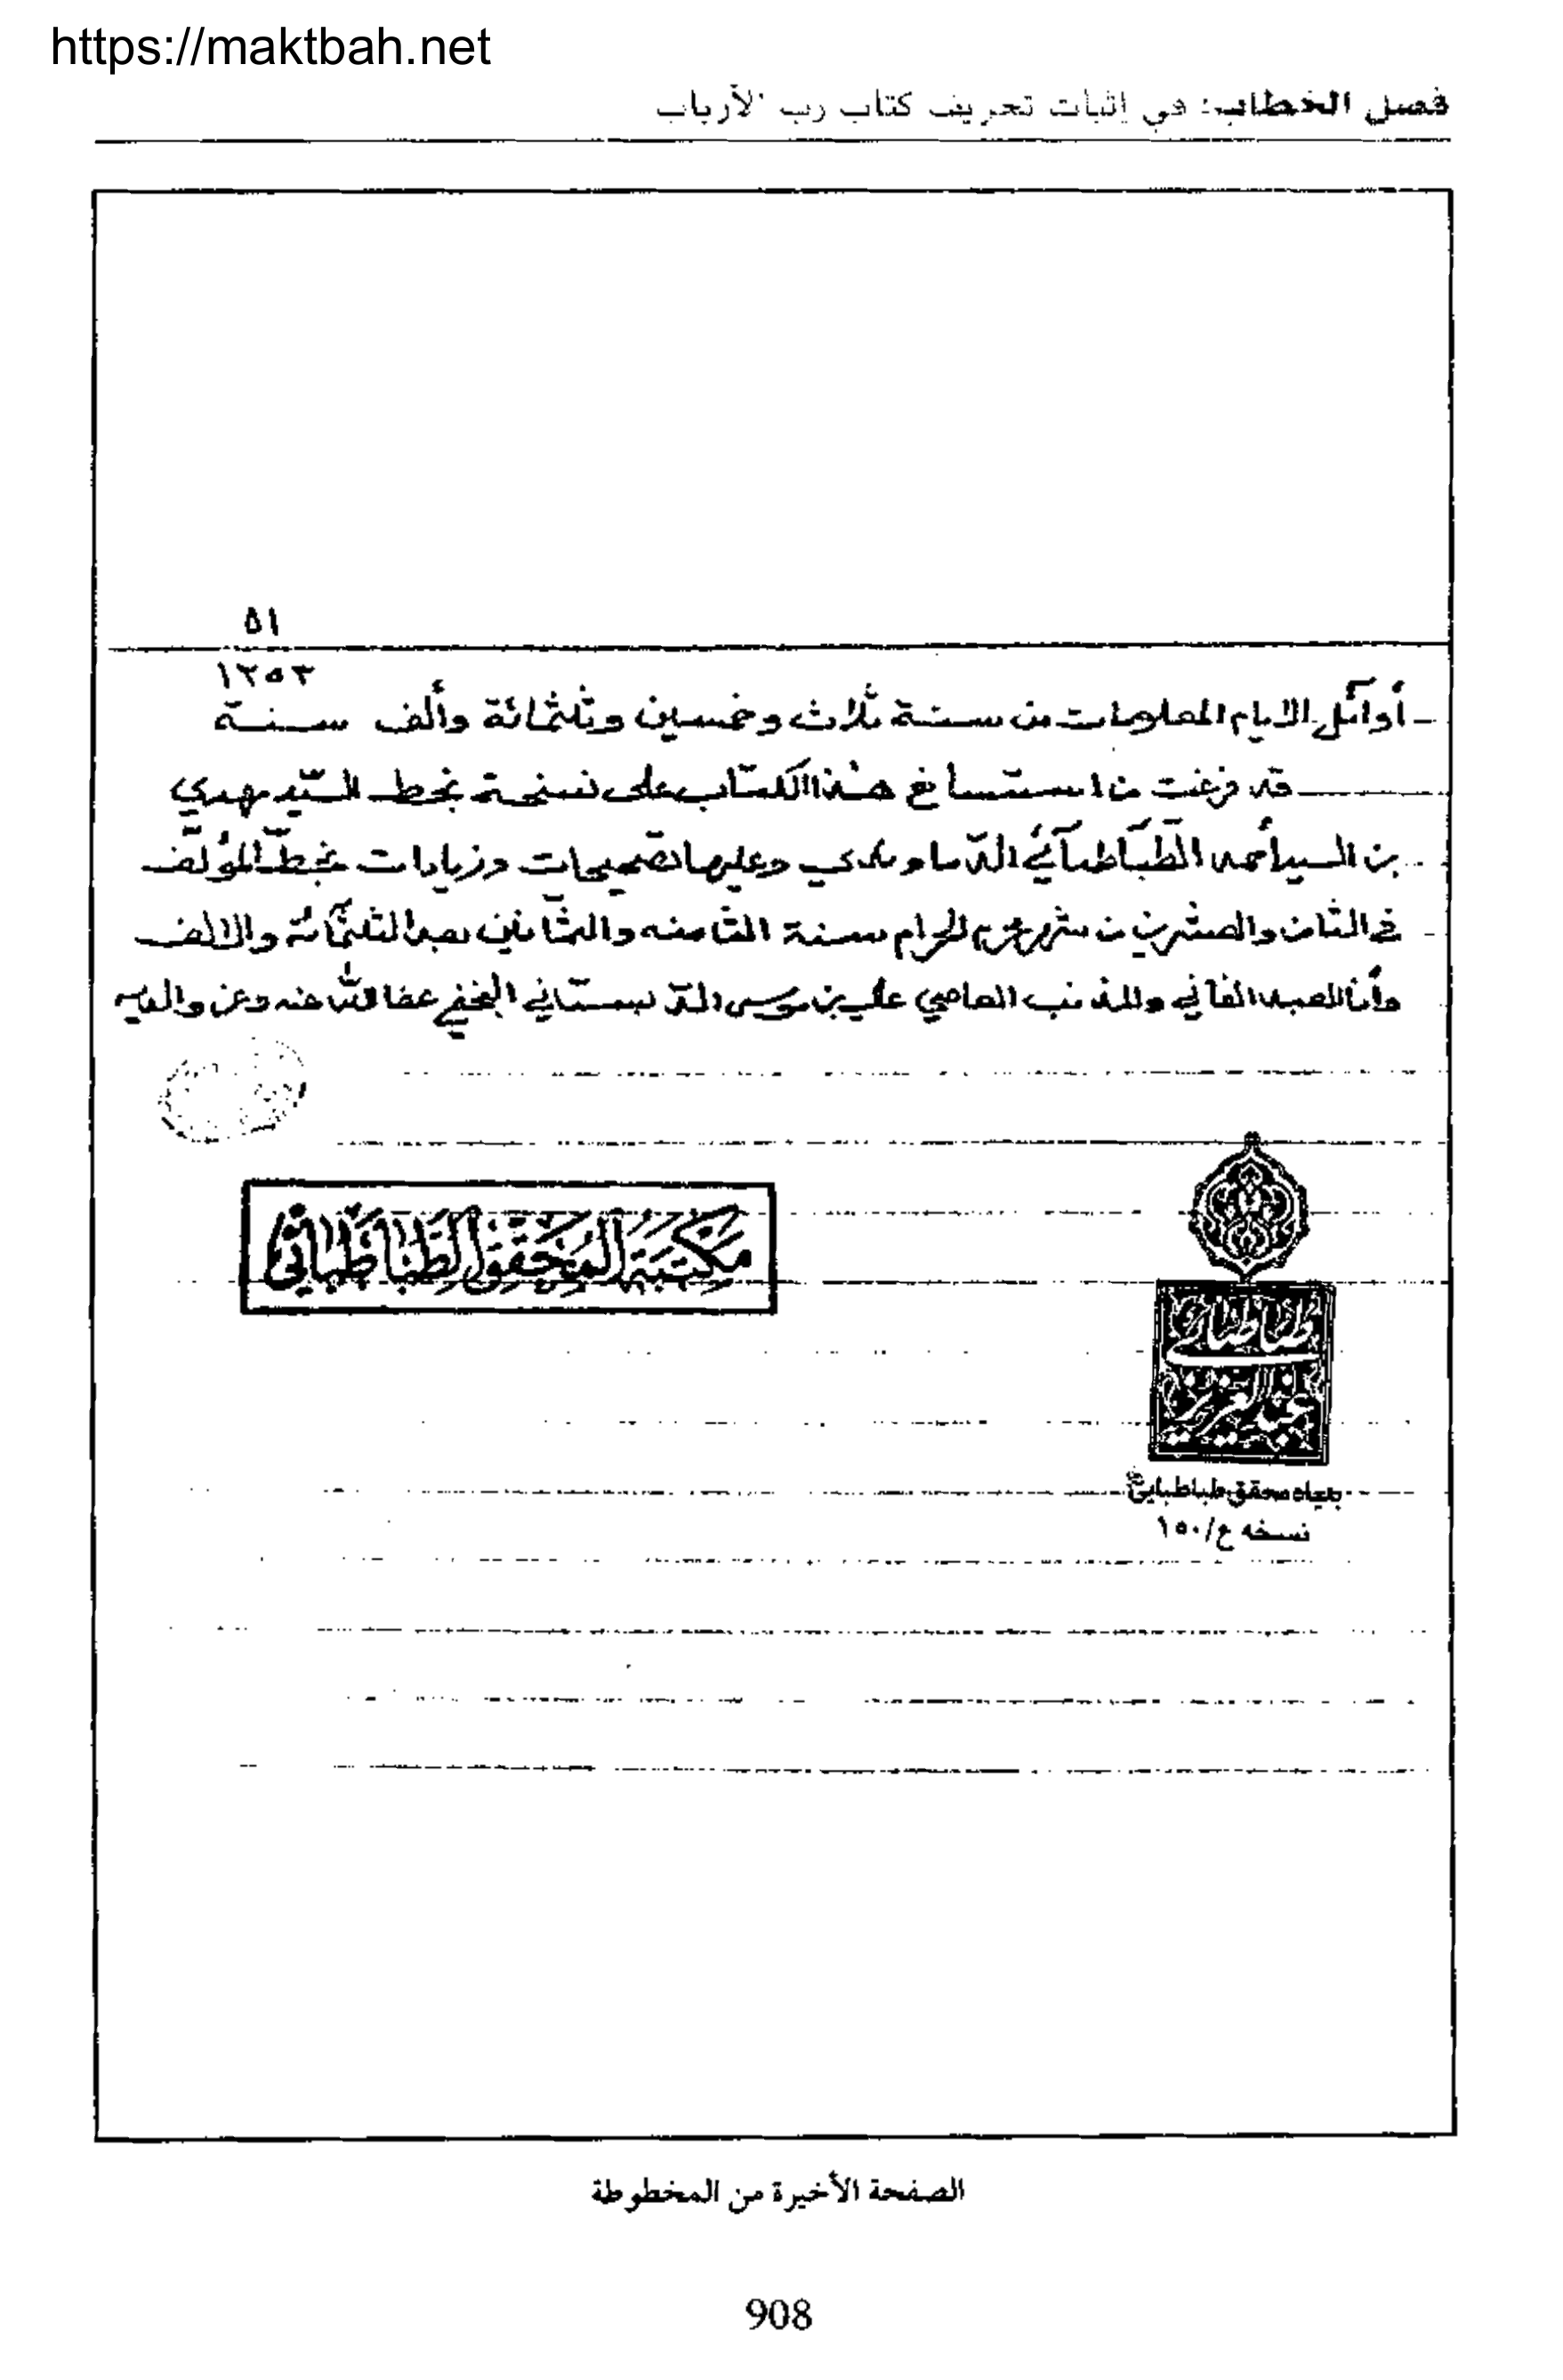 https://maktbah.net
فصل الخطاب: في إثبات تحريف كتاب رب الأرباب
٥١
١٢٥٣
أوائل الايام المعلومات من سنة ثلاث وخمسين وثلثمائة وألف سنة
قد فرغت من استنساخ هذا الكتاب على نسخة بخط السّيد مهدي
بن السيد أحمد الطّباطبآئي الدّماوندي وعليها تصحيحات وزيادات بخطّ المؤلّف
في الثامن والعشرين من شهر محرم الحرام سنة الثامنه والثمانين بعد الثلثمائة والالف
وأنا العبد الفاني والمذنب العاصي علي بن موسى الدّبستاني النجفي عفا الله عنه وعن والديه
مكتبة المحقق الطباطبائي
طباطبائي
عبد العزيز
بنياد محقق طباطبايى
نسخه ع/١٥٠
الصفحة الأخيرة من المخطوطة
908